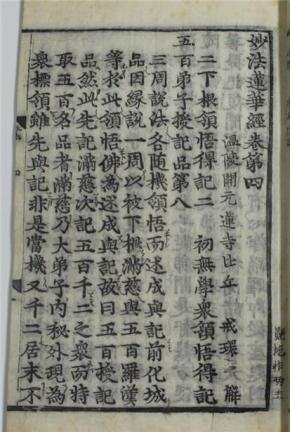 妙法蓮華經卷第四
溫陵開元蓮寺比丘 戒環 解
二下根領悟得記二 初無學衆領悟得記
五百弟子授記品第八
三周說法各隨機領悟而述成與記前化城
品因縁說一周以被下根滿慈與五百羅漢
等於此領悟佛為述成與記故曰五百授記
品然此先記滿慈次記五百千二之衆而特
取五百名品者滿慈乃大弟子内秘外現為
衆標領雖先與記非是當機又千二居末不